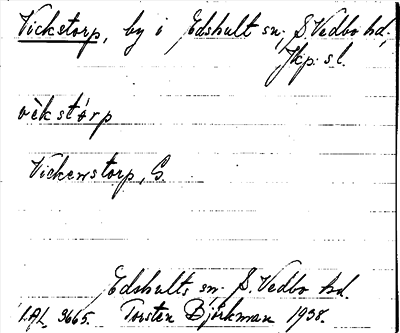 Vickstorp, by i Edshult sn, S. Vedbo hd,
Jkp. s l.
vèkstórp
Vickenstorp, G.
Edshults sn S. Vedbo hd.
I.A.L. 3665. Torsten Björkman 1938.